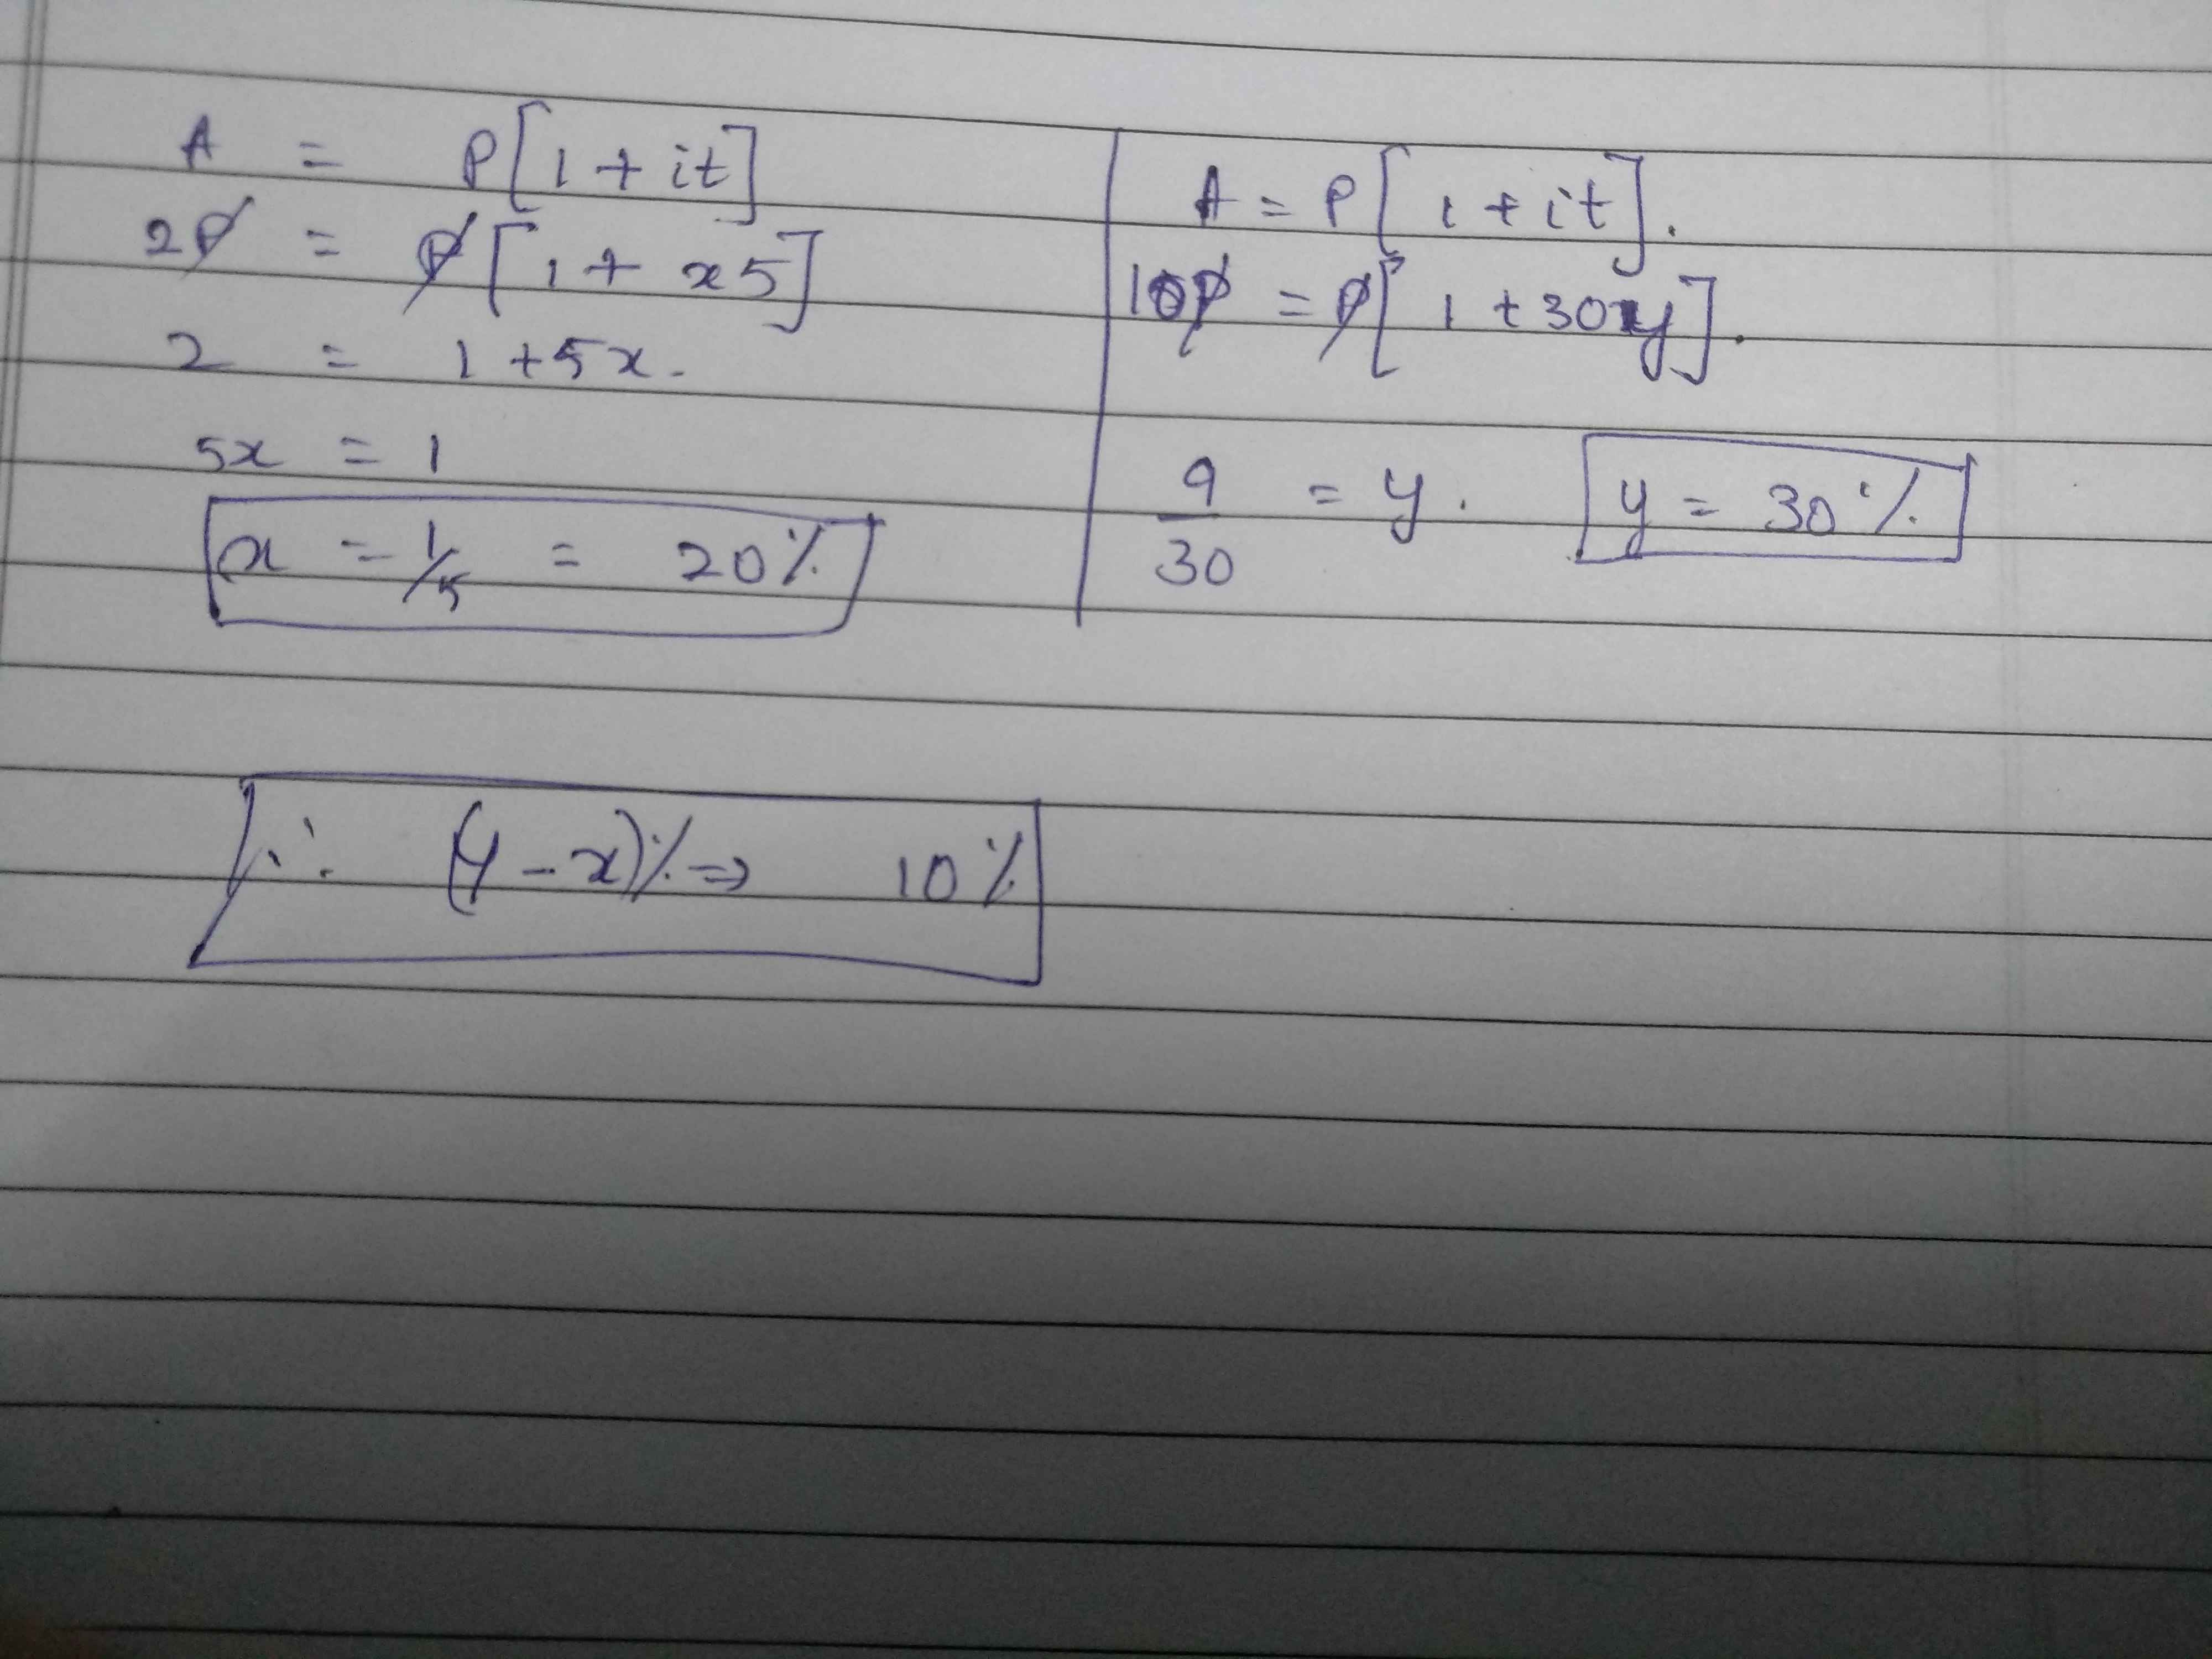 A = P[1 + it]
2P = P[1 + x5]
2 = 1 + 5x.
5x = 1
x = 1/5 = 20%
A = P[1 + it].
10P = P[1 + 30y].
9/30 = y. y = 30%
∴ (y - x)% ⇒ 10%